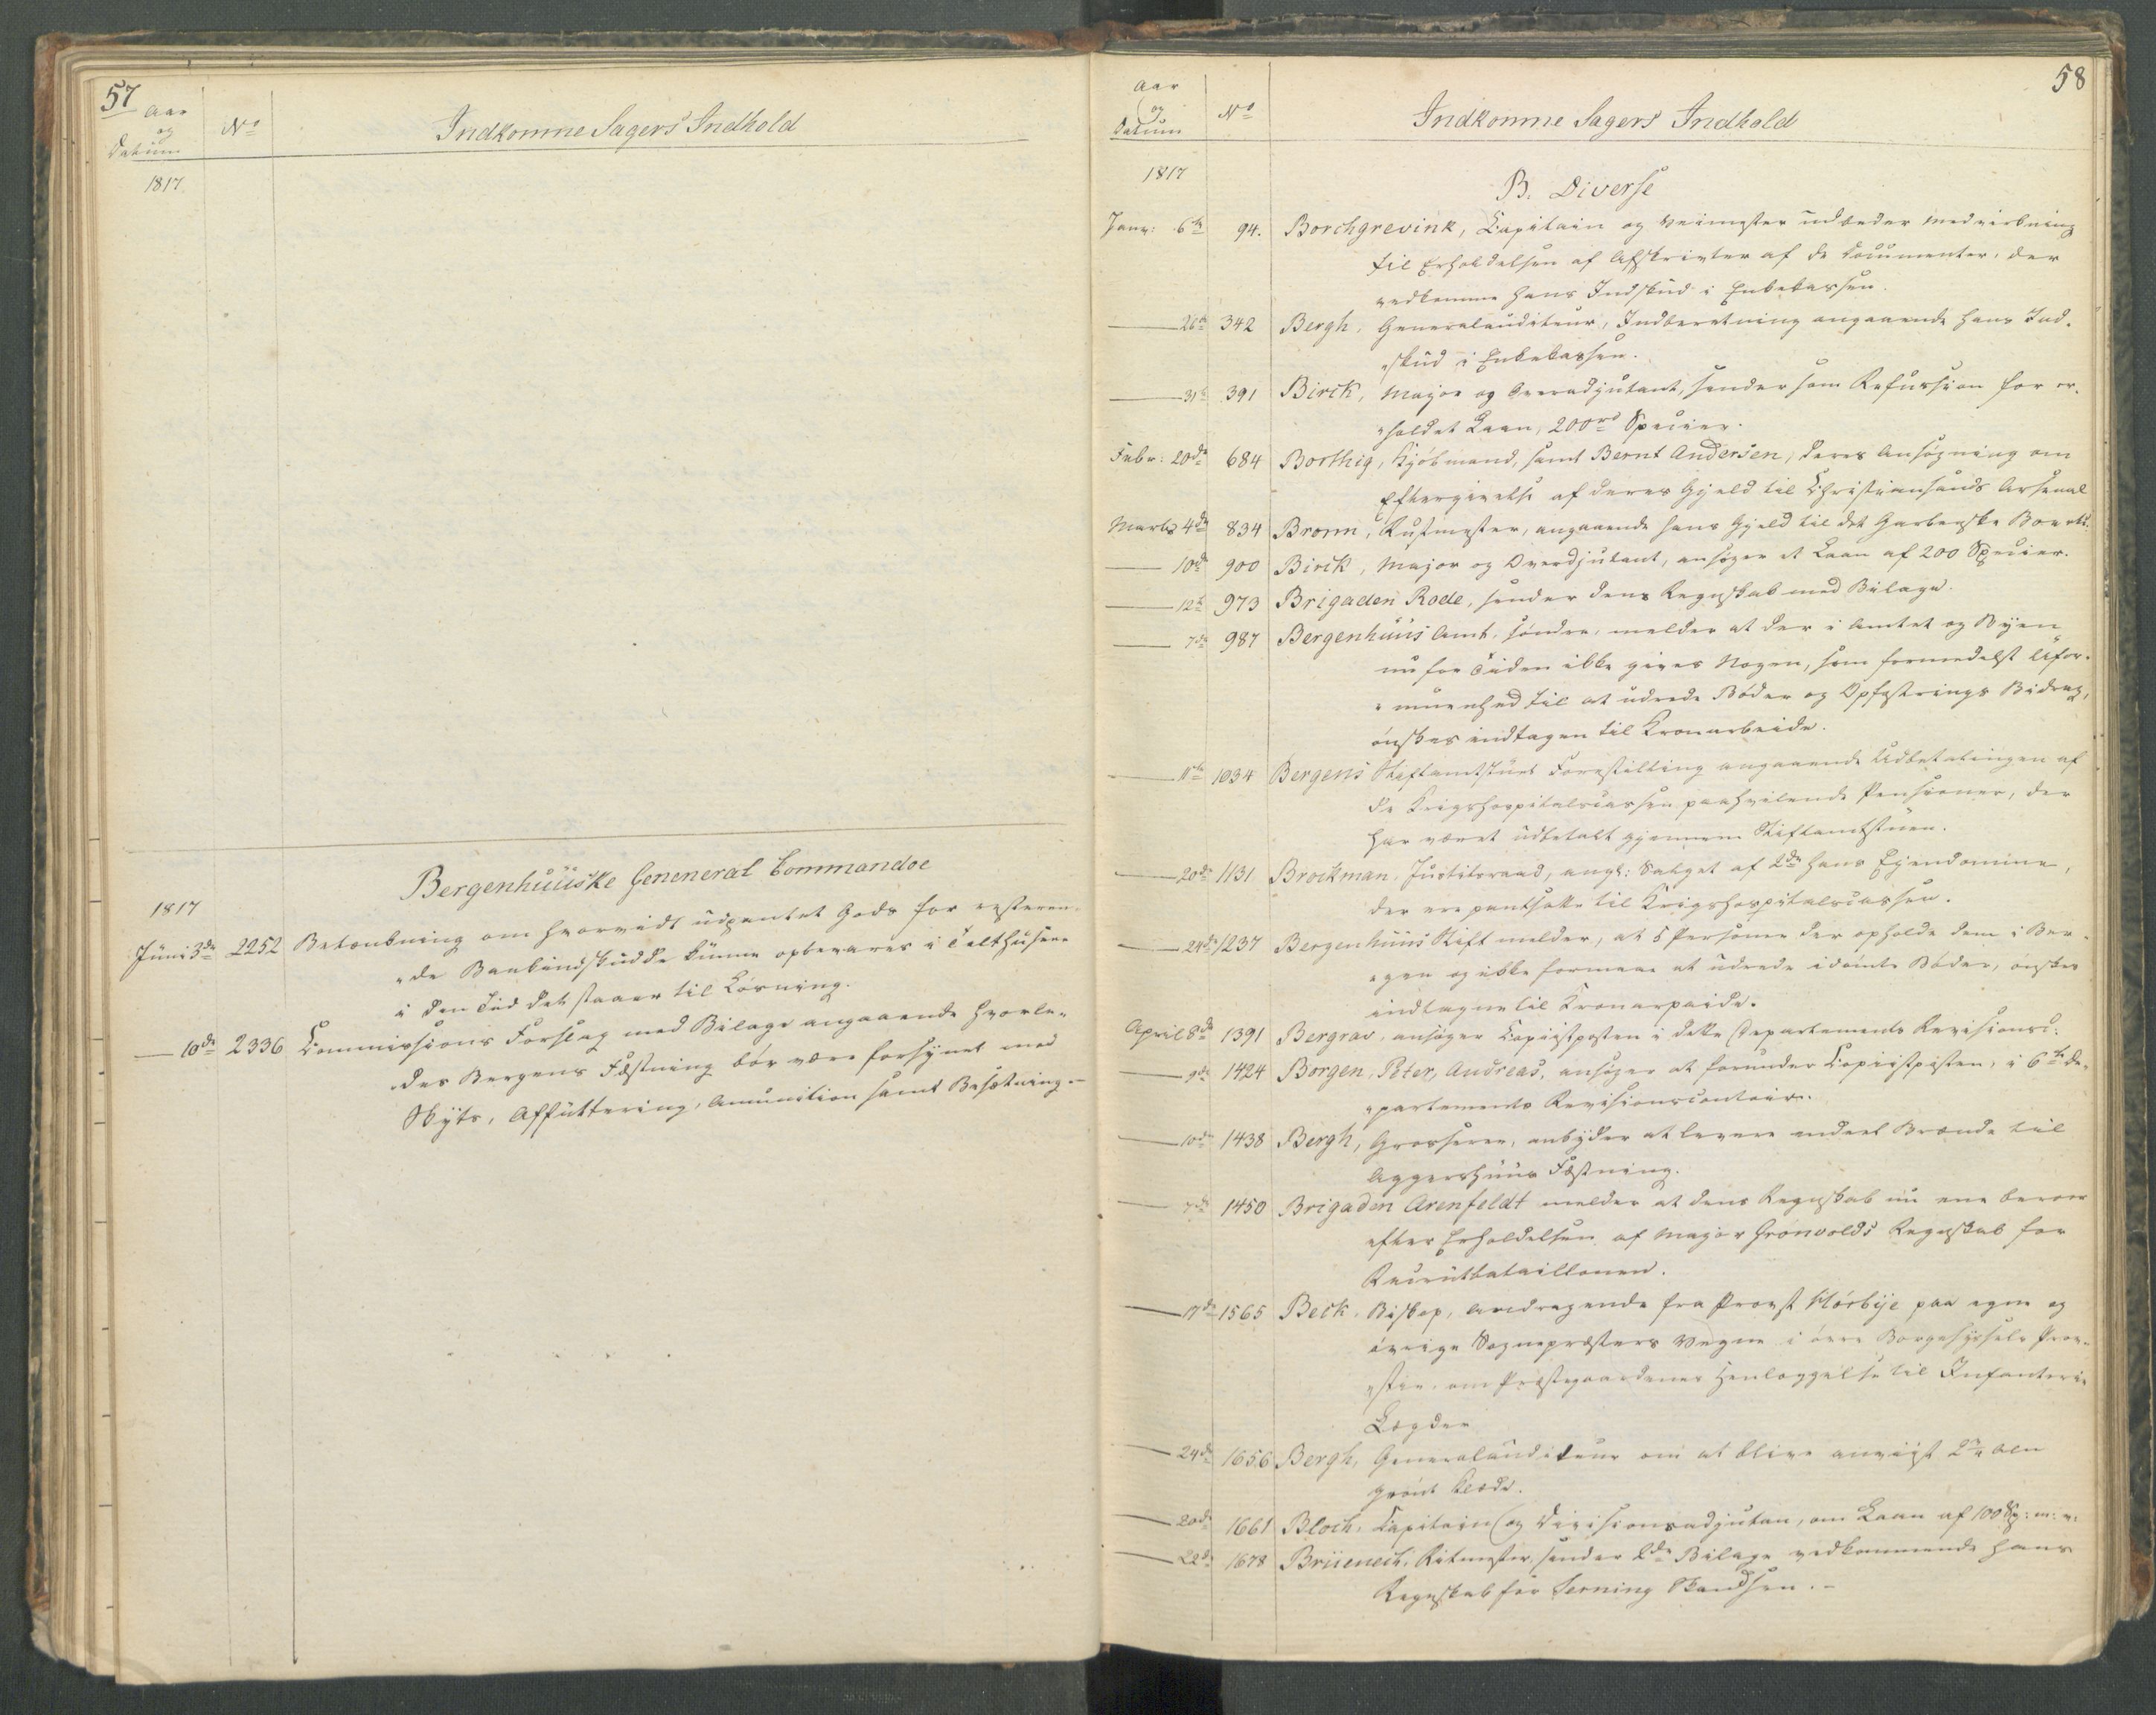 57
Aar
og
Datum
No
Indkomne Sagers Indhold
1817
Bergenhuuske Geneneral Commandoe
1817
Juni 3de 2252 Betænkning om hvorvidt udpantet Gods for resteren-
"de Bankindskudde kunne opbevares i Telthusene
i den Tid det staaer til Løsning.
— 10de 2336 Commissions Forslag med Bilage angaaende hvorle-
"des Bergens Fæstning bør være forsynet med
Skyts, Affuttering, Amunition samt Besætning.—
58
Aar
og
Datum
No
Indkomne Sagers Indhold
1817
B. Diverse
Janv: 6te 94. Borchgrevink, Capitain og Veimester udbeder Medvirkning
til Erholdelsen af Afskrivter af de Documenter, der
vedkomme hans Indskud i Enkekassen.
— 26de 342 Bergh, Generalauditeur, Indberetning angaaende hans Ind-
"skud i Enkekassen.
— 31te 391 Birck, Major og Overadjutant, sender som Refussion for er-
"holdet Laan, 200 rd Specier.
Febr: 20de 684 Borthig, Kjøbmand, samt Bernt Andersen, deres Ansøgning om
Eftergivelse af deres Gjæld til Christiansands Arsenal
Marts 4de 834 Bronn, Rustmester, angaaende hans Gjæld til det Garbenske Boe etc.
— 10de 900 Birck, Major og Overdjutant, ansøger et Laan af 200 Specier.
— 12te 973 Brigaden Rode, sender dens Regnskab med Bilage.
— 7de 987 Bergenhuus Amt, søndre, melder at der i Amtet og Byen
nu for Tiden ikke gives Nogen, som formedelst Ufor-
"muenhed til at udrede Bøder og Opfostrings Bidrag,
ønskes indtagen til Kronarbeide.
— 11te 1034 Bergens Stiftamtstue Forestilling angaaende Udbetalingen af
de Krigshospitalscassen paahvilende Pensioner, der
har været udbetalt gjennem Stiftamtstuen.
— 20de 1131 Brockman, Justitsraad, angl: Salget af 2de hans Ejendomme,
der ere pantsatte til Krigshospitalscassen.
— 24de 1237 Bergenhuus Stift melder, at 5 Personer der opholde dem i Ber-
"gen og ikke formaae at udrede idømte Bøder, ønskes
indtagne til Kronarpaide.
April 8de 1391 Bergrav, ansøger Copiistposten i dette Departements Revisionsc:
— 9de 1424 Borgen, Peter, Andreas, ansøger at forundes Copiistposten, i 6te De-
"partements Revisionscontoir.
— 10de 1438 Bergh, Grosserer, anbyder at levere endeel Brænde til
Aggershuus Fæstning.
— 7de 1450 Brigaden Arenfeldt melder at dens Regnskab nu ene beroer
efter Erholdelsen af Major Grønvolds Regnskab for
Recrutbataillonen.
— 17de 1565 Beck, Biskop, Andragende fra Provst Hørbye paa egne og
øvrige Sognepræsters Vegne i øvre Borgesyssels Prov-
"stie, om Præstegaardenes Henlæggelse til Infanterie
Lægder
— 24de 1656 Bergh, Generalauditeur om at blive anviist 2 Alen
grønt Klæde.
— 20de 1661 Bloch, Capitain og Divisionsadjutan, om Laan af 100 Sp: m: v:
— 22de 1678 Brüenech, Ritmester, sender 2de Bilage vedkommende hans
Regnskab for Terning Skandsen.—